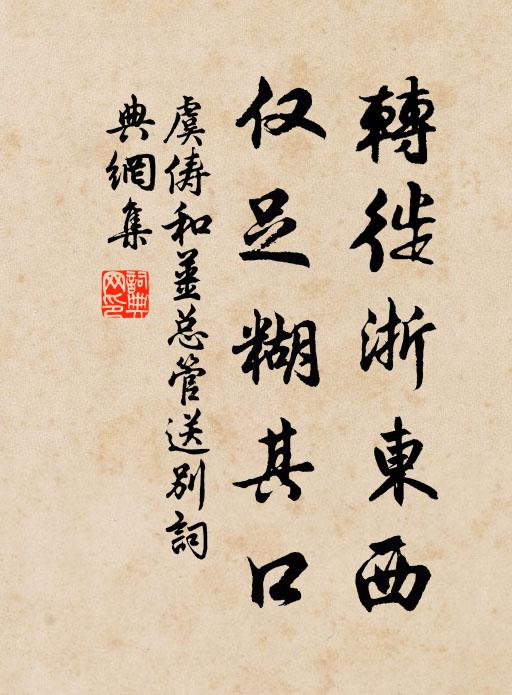 轉徙浙東西
仅足糊其口
虞俦和姜总管送别詞
典網集
詞典网印